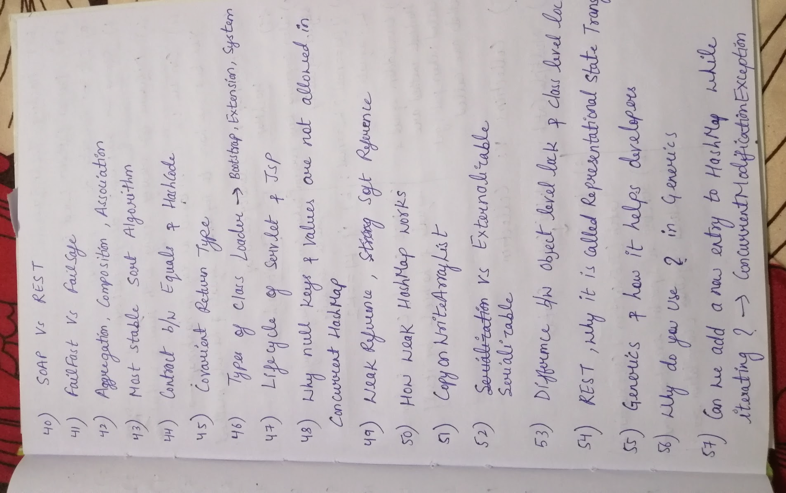 40) SOAP Vs REST
41) FailFast Vs FailSafe
42) Aggregation, Composition, Association
43) Most Stable Sort Algorithm
44) Contract b/w Equals & HashCode
45) Covarient Return Type
46) Types of Class Loader → Bootstrap, Extension, System
47) Lifecycle of Servlet & JSP
48) Why null keys & values are not allowed in
Concurrent HashMap
49) Weak Reference, Strong Soft Reference
50) How Weak HashMap works
51) Copy on WriteArrayList
52) Serialization vs Externalizable
Serializable
53) Difference b/w Object level lock & Class level loc
54) REST, Why it is called Representational State Trans
55) Generics & how it helps developers
56) Why do you use ? in Generics
57) Can we add a new entry to HashMap while
iterating ? → ConcurrentModificationException